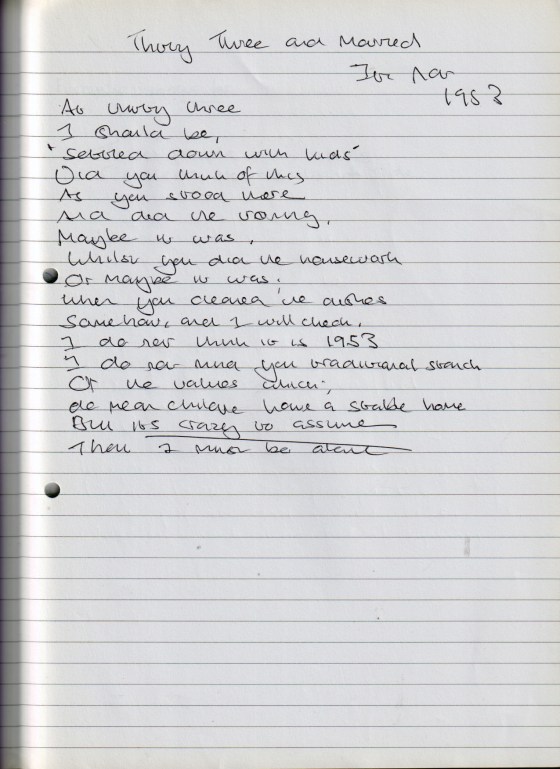 Thirty Three and Married
Its Not
1953
At thirty three
I should be,
"Settled down with kids"
Did you think of this
As you stood there
And did the ironing,
Maybe it was,
Whilst you did the housework
Or maybe it was;
When you cleaned the dishes
Somehow, and I will check,
I do not think it is 1953
I do not mind you traditional stance
Of the values which;
do mean children have a stable home
But its crazy to assume
That I must be